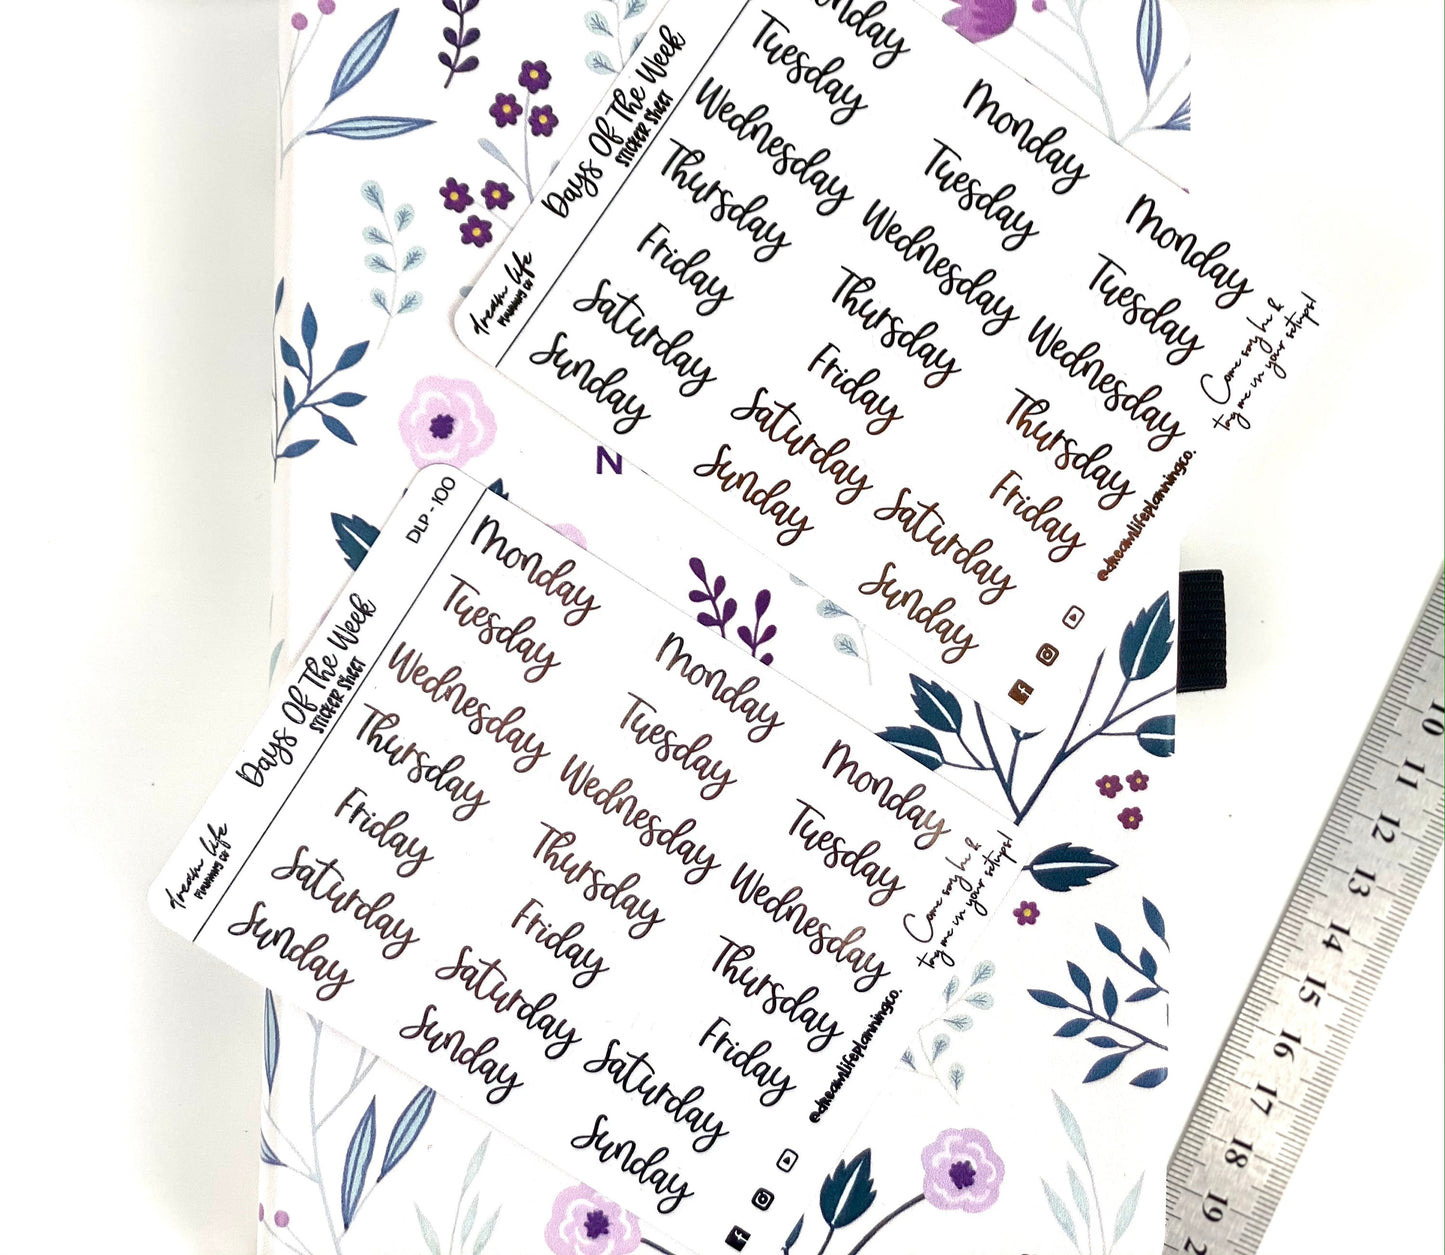 Days Of The Week
STICKER SHEET
dream life
PLANNING CO
Monday
Tuesday
Wednesday
Thursday
Friday
Saturday
Sunday
Monday
Tuesday
Wednesday
Thursday
Friday
Saturday
Sunday
Monday
Tuesday
Wednesday
Thursday
Friday
Saturday
Sunday
Come say hi &
tag me in your setups!
@dreamlifeplanningco.
N
DLP - 100
Days Of The Week
STICKER SHEET
dream life
PLANNING CO
Monday
Tuesday
Wednesday
Thursday
Friday
Saturday
Sunday
Monday
Tuesday
Wednesday
Thursday
Friday
Saturday
Sunday
Monday
Tuesday
Wednesday
Thursday
Friday
Saturday
Sunday
Come say hi &
tag me in your setups!
@dreamlifeplanningco.
10
11
12
13
14
15
16
17
18
19